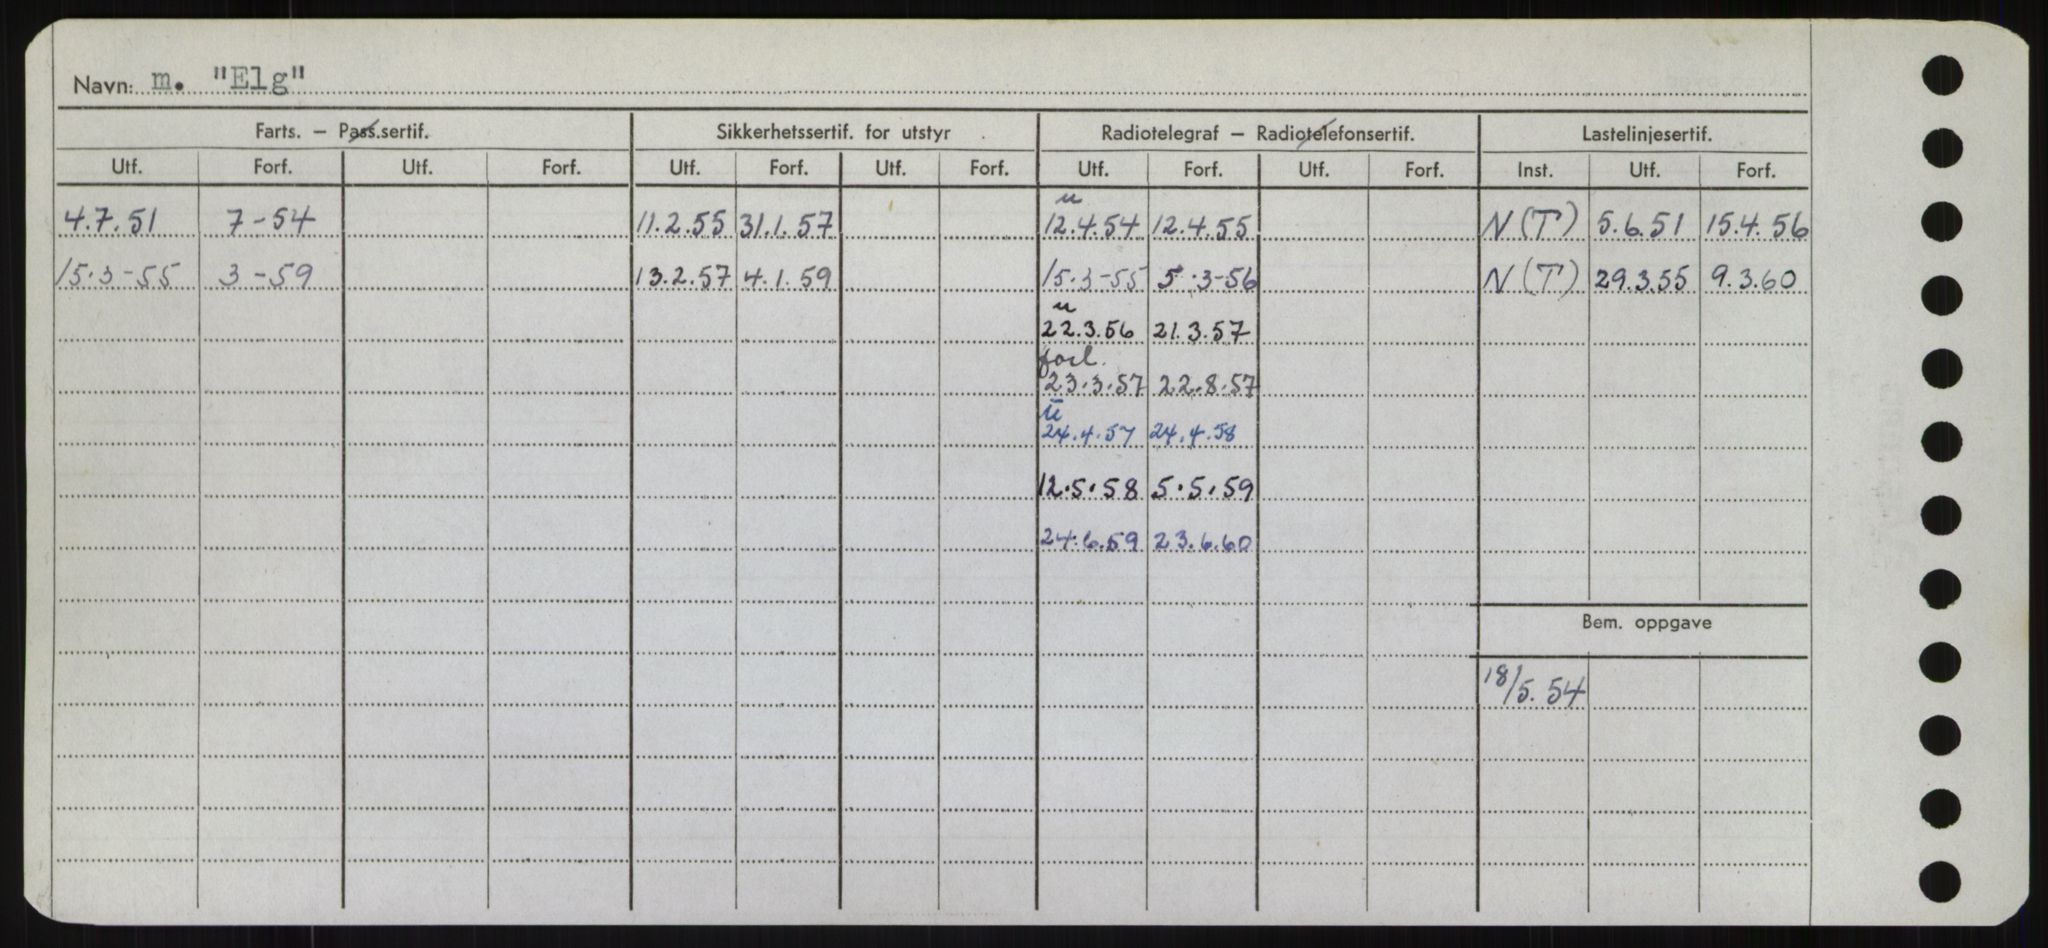 Navn: m. "Elg"
Farts. – Pass.sertif. Sikkerhetssertif. for utstyr Radiotelegraf – Radiotelefonsertif. Lastelinjesertif.
Utf. Forf. Utf. Forf. Utf. Forf. Utf. Forf. Utf. Forf. Utf. Forf. Inst. Utf. Forf.
u
4.7.51 7-54 11.2.55 31.1.57 12.4.54 12.4.55 N(T) 5.6.51 15.4.56
15.3-55 3-59 13.2.57 4.1.59 15.3-55 5.3-56 N(T) 29.3.55 9.3.60
u
22.3.56 21.3.57
forl.
23.3.57 22.8.57
u
24.4.57 24.4.58
12.5.58 5.5.59
24.6.59 23.6.60
Bem. oppgave
18/5.54